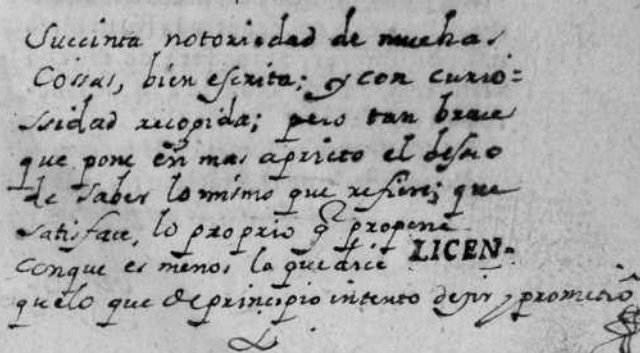 Succinta notoriedad de muchas
Cossas, bien escrita; y con curio=
ssidad recopida; pero tan breue
que pone en mas aprieto el deseo
de saber lo mismo que refiere; que
satisface, lo proprio q propone
conque es menos lo que dice LICEN-
quelo que de principio intento desir y prometio